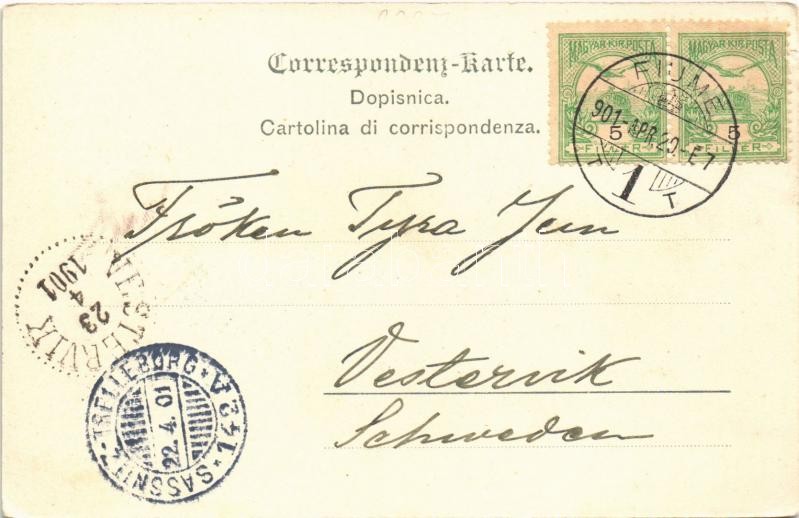 Correspondenz-Karte.
Dopisnica.
Cartolina di corrispondenza.
MAGYAR KIR. POSTA
5
FILLÉR
MAGYAR KIR. POSTA
5
FILLÉR
FIUME
901-APR.20.-E7
T 1 T
Fröken Tyra Jem
Vestervik
Schweden
VESTERVIK
23
4
1901
SASSNITZ-TRELLEBORG * V 242 *
22.4.01